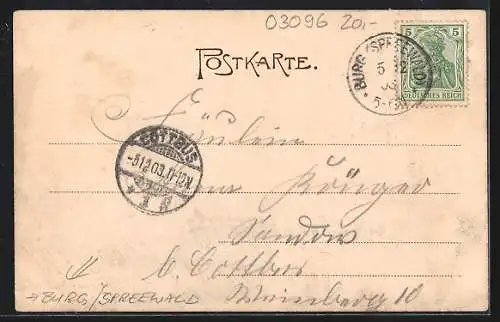 03096 20,-
POSTKARTE.
5 5
DEUTSCHES REICH
BURG (SPREEWALD)
5 12
03
COTTBUS
-5.12.03. 11-12 N.
Fräulein
Krüger
Sandow
b. Cottbus
Weinberg 10
→ BURG/SPREEWALD